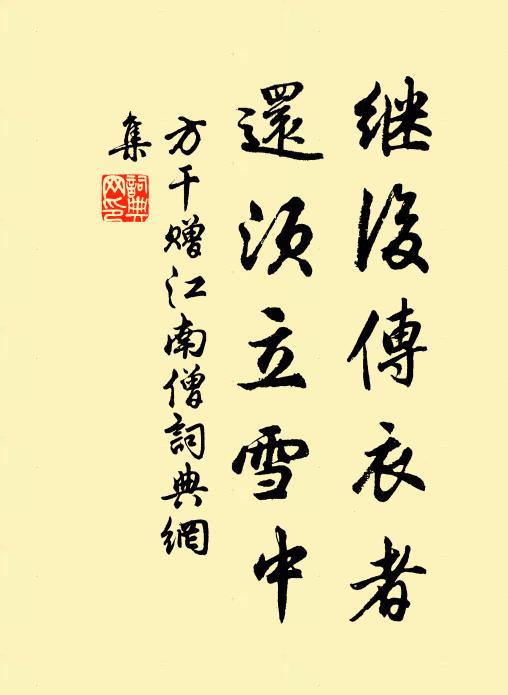 继後傳衣者
還須立雪中
方干赠江南僧詞典網
集
詞典网印